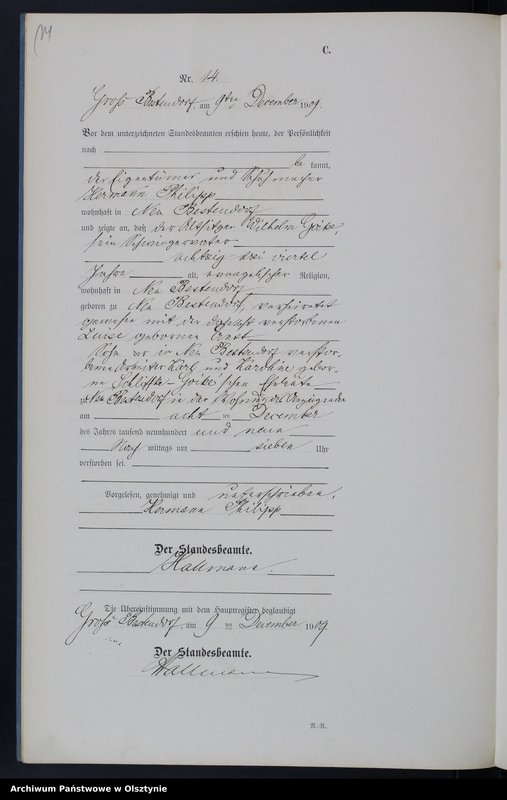 14
C.
Nr. 14.
Gross Bestendorf, am 9ten December 1909.
Vor dem unterzeichneten Standesbeamten erschien heute, der Persönlichkeit
nach
be kannt,
der Eigentümer und Schuhmacher
Hermann Philipp
wohnhaft in Neu Bestendorf
und zeigte an, daß der Altsitzer Wilhelm
sein Schwiegervater
achtzig drei viertel
Jahre alt, evangelischer Religion,
wohnhaft in Neu Bestendorf
geboren zu Neu Bestendorf, verheiratet
gewesen mit der daselbst verstorbenen
Luise geborenen
Sohn der in Neu Bestendorf verstor-
benen Arbeiter Karl und Karoline gebor-
ne schen Eheleute
zu Neu Bestendorf in der Wohnung des Anzeigenden
am acht ten December
des Jahrs tausend neunhundert und neun
Nach mittags um sieben Uhr
verstorben sei.
Vorgelesen, genehmigt und unterschrieben.
Hermann Philipp
Der Standesbeamte.
Hallmann.
Die Übereinstimmung mit dem Hauptregister beglaubigt
Gross Bestendorf, am 9 ten December 1909.
Der Standesbeamte.
Hallmann
N.-R.
Archiwum Państwowe w Olsztynie